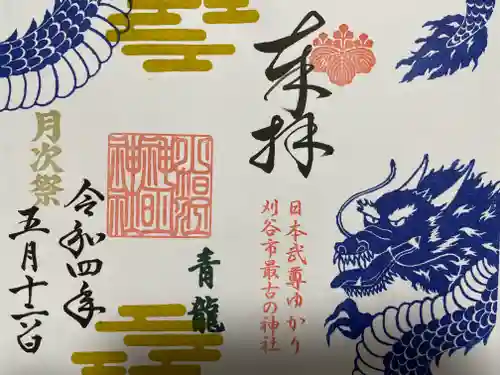 奉拝
日本武尊ゆかり
刈谷市最古の神社
青龍
小垣江
神明
神社
令和四年
五月十六日
月次祭